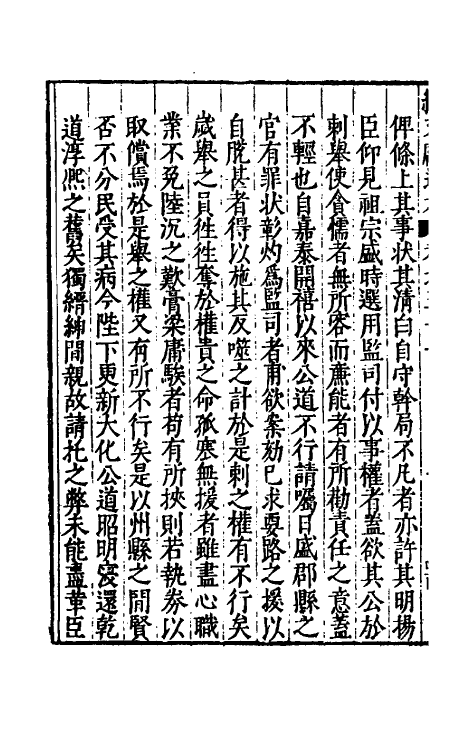 俾條上其事狀其清白自守幹局不凡者亦許其明揚
臣仰見祖宗盛時選用監司付以事權者蓋欲其公於
刺舉使貪懦者無所容而亷能者有所勸責任之意蓋
不輕也自嘉泰開禧以來公道不行請囑日盛郡縣之
官有罪狀彰灼爲監司者甫欲案劾巳求要路之援以
自脱甚者得以施其反噬之計於是刺之權有不行矣
歲舉之貟徃徃奪於權貴之命孤寒無援者雖盡心職
業不免陸沉之歎膏粱庸騃者苟有所挾則若執券以
取償焉於是舉之權又有所不行矣是以州縣之間賢
否不分民受其病今陛下更新大化公道昭明寖還乾
道淳熙之舊矣獨縉紳間親故請托之弊未能盡革臣